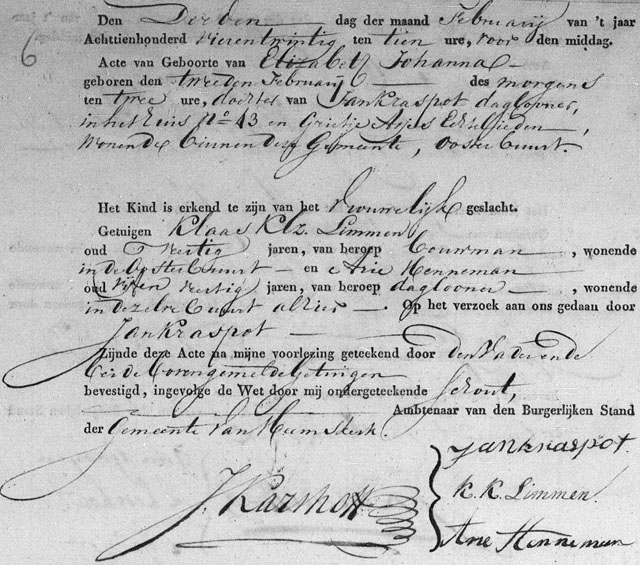 Den Derden dag der maand Februarij van 't jaar
Achttienhonderd vierentwintig ten tien ure, voor den middag.
Acte van Geboorte van Elizabeth Johanna
geboren den tweeden Februarij des morgens
ten twee ure, dochter van Jan Kraspot daglooner,
in het huis No 43 en Grietje Arjes Echtelieden,
wonende binnen deze Gemeente, Ooster Buurt.
Het Kind is erkend te zijn van het Vrouwelijk geslacht.
Getuigen Klaas Klz. Limmen
oud veertig jaren, van beroep bouwman, wonende
in de Ooster Buurt en Arie Henneman
oud vijfen veertig jaren, van beroep dagloner, wonende
in dezelve Buurt alhier. Op het verzoek aan ons gedaan door
Jan Kraspot
Zijnde deze Acte na mijne voorlezing geteekend door den Vader ende
beide bovengemelde Getuigen
bevestigd, ingevolge de Wet door mij ondergeteekende Schout,
Ambtenaar van den Burgerlijken Stand
der Gemeente van Heemskerk.
Jan Kraspot.
K. K. Limmen.
Arie Henneman